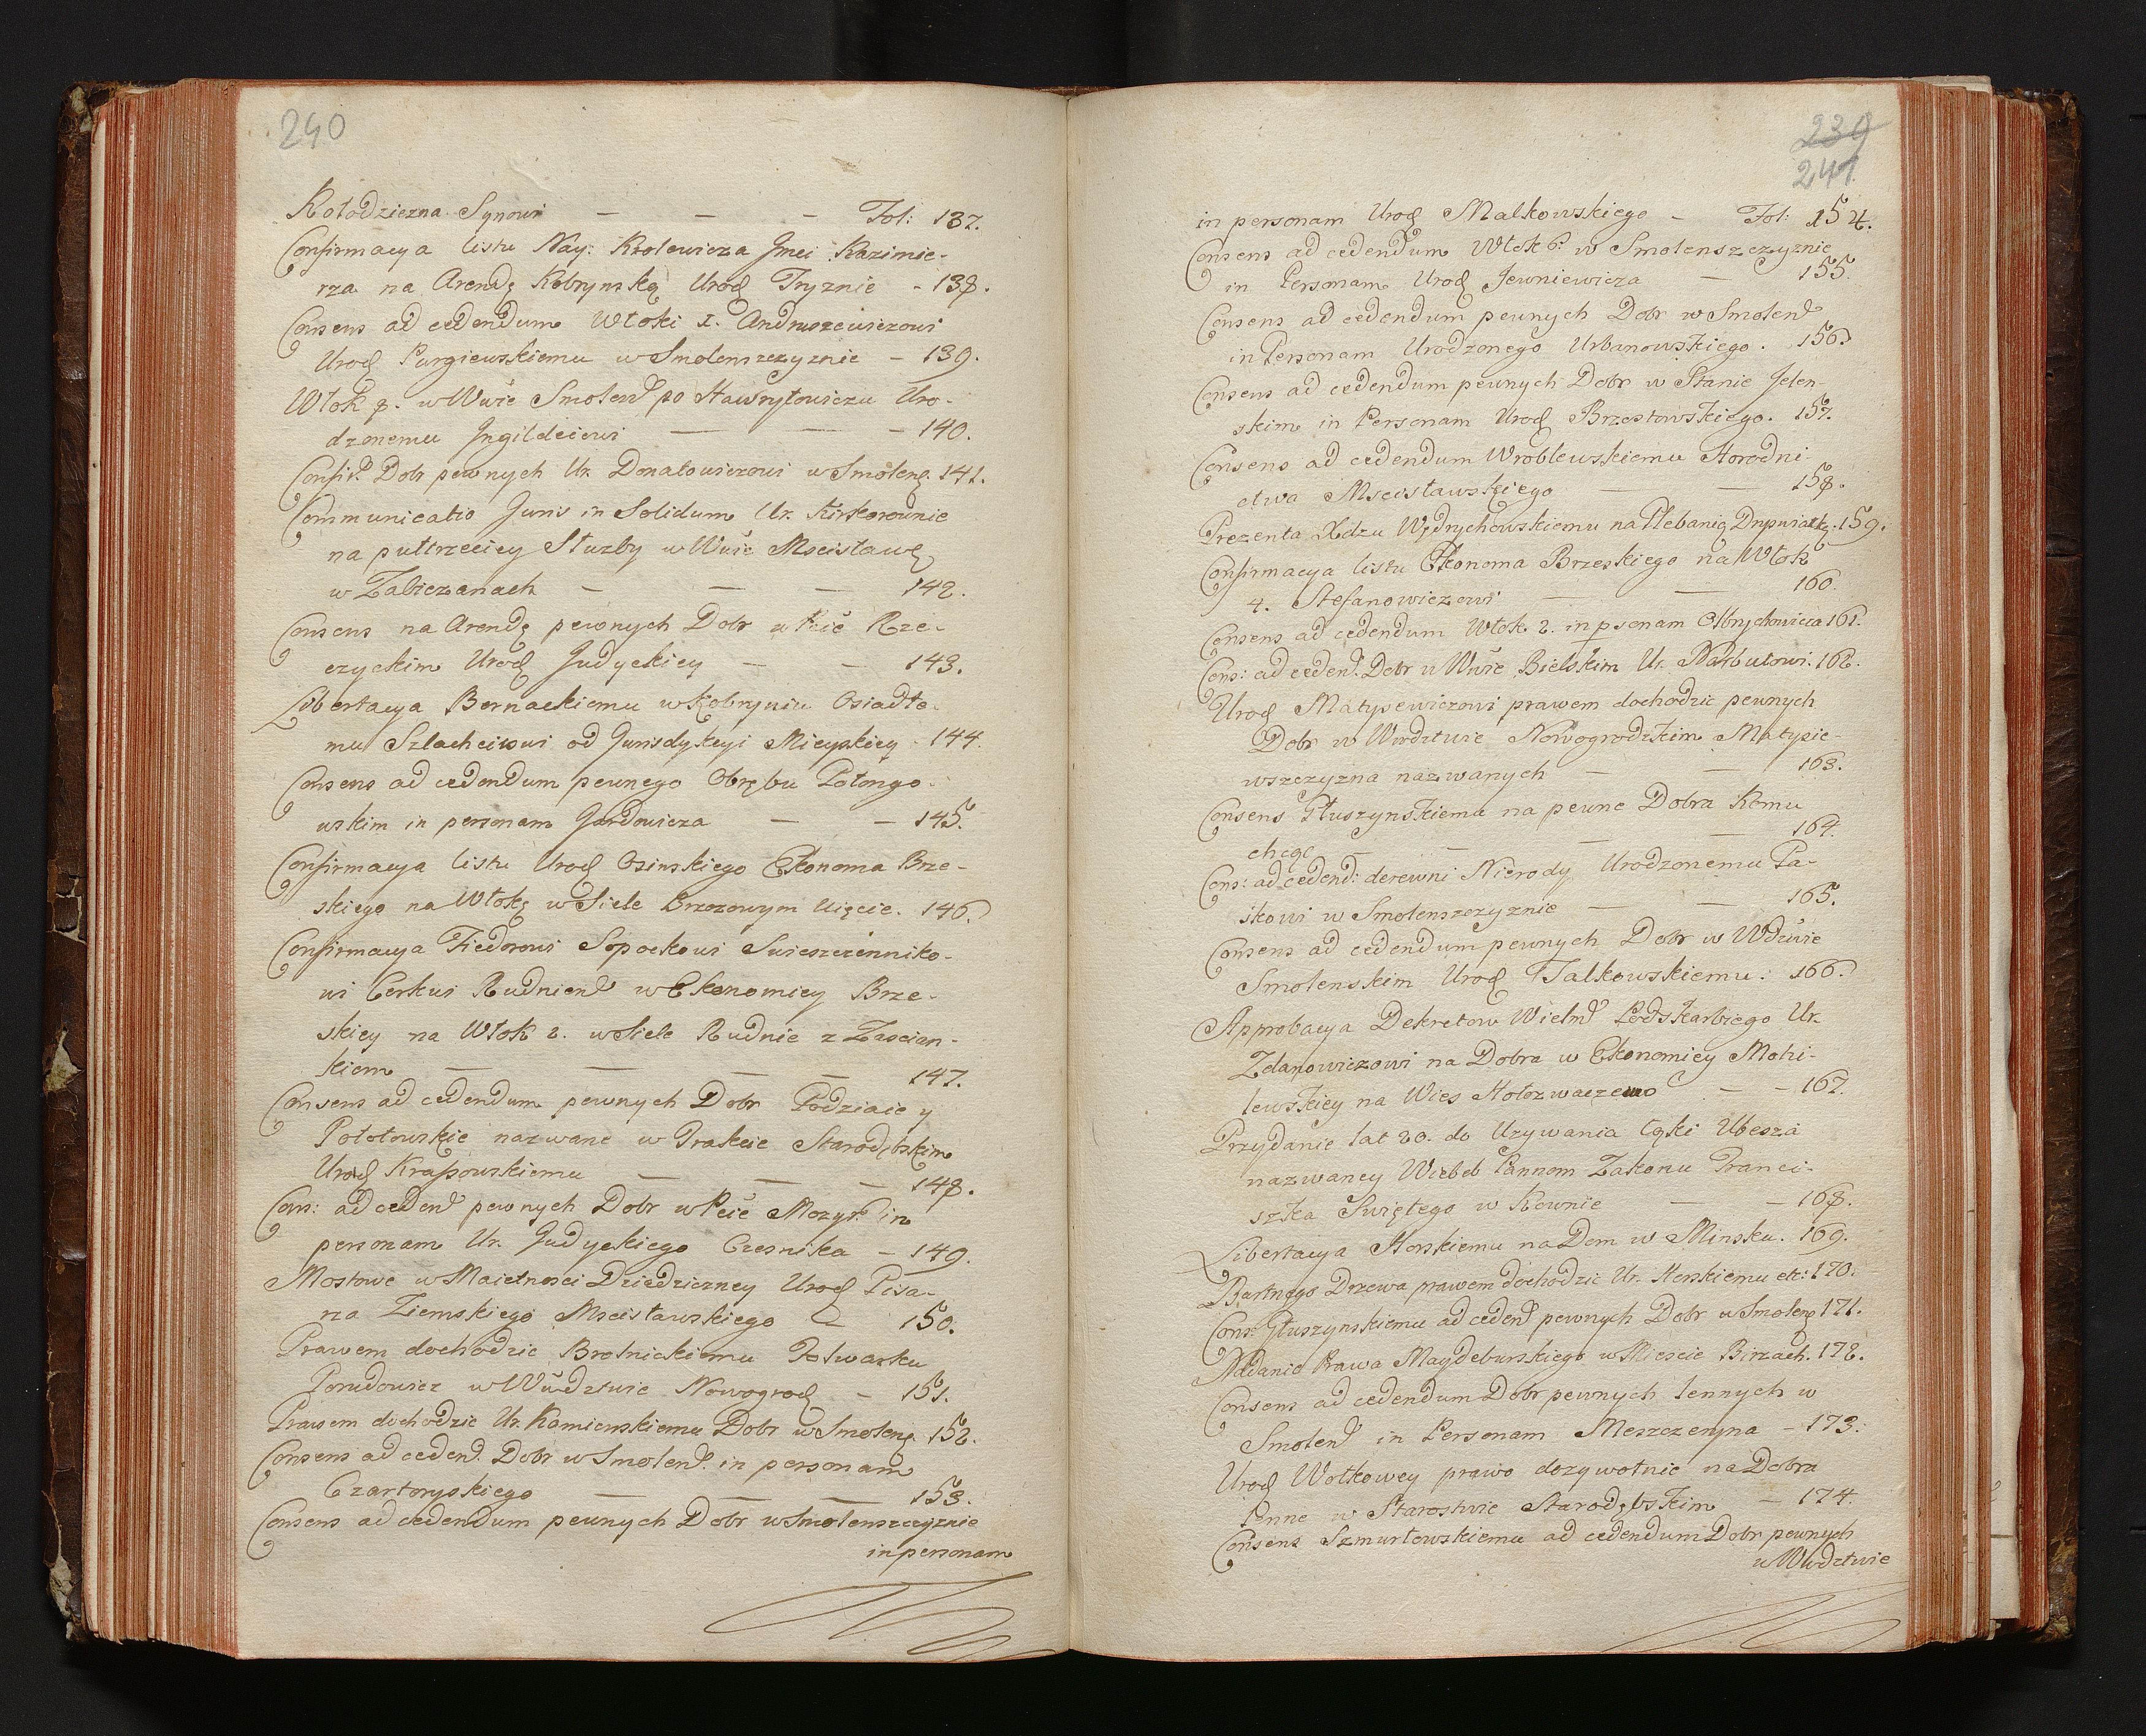 240
Kołodziezna Synowi — — — Fol: 137.
Confirmacya listu Nay: Krolewicza Jmci Kazimie-
rza na Arendę Kobrynską Urod Tryznie - 138.
Consens ad cedendum Włoki 1. Andruszewiczowi
Urod Purgiewskiemu w Smolenszczyznie - 139.
Włok 8. w Wwie Smolen po Hawryłowiczu Uro-
dzonemu Jngildeiewi — — - 140.
Confir. Dobr pewnych Ur. Donatowiczowi w Smolens. 141.
Communicatio Juris in Solidum Ur. Kirkorownie
na pułtrzeciey Służby w Wwie Mscisław
w Zabiczanach — — — 142.
Consens na Arendę pewnych Dobr w Pcie Rze-
czyckim Urod Judyckiey — — 143.
Libertacya Bernackiemu w Kobryniu Osiadło-
mu Szlachciowi od Jurisdykcyi Mieyskiey - 144.
Consens ad cedendum pewnego Obrębu Połongo-
wskim in personam Jundowicza — — 145.
Confirmacya listu Urod Osinskiego Ekonoma Brze-
skiego na Włokę w Siele Brzozowym Kięcie. 146.
Confirmacya Fiedorowi Sopockowi Swieszczenniko-
wi Cerkwi Rudnien w Ekonomiey Brze-
skiey na Włok 2. w Siele Rudnie z Zascian-
kiem — — — — 147.
Consens ad cedendum pewnych Dobr Podziaie y
Połotowskie nazwane w Trakcie Starodębskim
Urod Krassowskiemu — — — 148.
Cons: ad ceden pewnych Dobr w Pcie Mozyr in
personam Ur. Judyckiego Czesnika — 149.
Mostowe w Maiętnosci Dziedziczney Urod Pisa-
rza Ziemskiego Mscisławskiego — 150.
Prawem dochodzic Brotnickiemu Folwarku
Porudowicz w Wwdztwie Nowogrod — 151.
Prawem dochodzic Ur. Kamienskiemu Dobr w Smolens. 152.
Consens ad ceden. Dobr w Smolen. in personam
Czartoryskiego — — — 153.
Consens ad cedendum pewnych Dobr w Smolenszczyznie
in personam
239
241.
in personam Urod Malkowskiego - Fol: 154.
Consens ad cedendum Włok 6. w Smolenszczyznie
in Personam Urod Jewniewicza — 155.
Consens ad cedendum pewnych Dobr w Smolen
in Personam Urodzonego Urbanowskiego. 156.
Consens ad cedendum pewnych Dobr w Stanie Jelen-
skim in Personam Urod Brzostowskiego. 157.
Consens ad cedendum Wroblewskiemu Horodni-
ctwa Mscisławskiego — — 158.
Prezenta Xdzu Wędrychowskiemu na Plebanią Drpwiatg. 159.
Confirmacya listu Ekonoma Brzeskiego na Włok
4. Stefanowiczowi — — 160.
Consens ad cedendum Włok. 2. in psonam Olbrychowicza 161.
Cons: ad ceden. Dobr w Wwie Bielskim Ur. Narbutowi. 162.
Urod Matysewiczowi prawem dochodzic pewnych
Dobr w Wwdztwie Nowogrodzkim Matysie-
wszczyzna nazwanych — — 163.
Consens Głuszynskiemu na pewne Dobra Komu
chcąc — — — 164.
Cons: ad cedend: derewni Nierody Urodzonemu Pa-
skowi w Smolenszczyznie — — 165.
Consens ad cedendum pewnych Dobr w Wdwie
Smolenskim Urod Falkowskiemu: 166.
Approbacya Dekretow Wielm Podskarbiego Ur.
Zdanowiczowi na Dobra w Ekonomiey Mohi-
lewskiey na Wies Hołozwaczewo — - 167.
Przydanie lat 20. do Uzywania Łąki Ubesza
nazwaney Wieleb Pannom Zakonu Franci-
szka Swiętego w Kownie — - 168.
Libertacya Horskiemu na Dom w Minsku. 169.
Bartnego Drzewa prawem dochodzic Ur. Horskiemu etc: 170.
Cons: Głuszynskiemu ad ceden pewnych Dobr w Smolens 171.
Nadanie Prawa Maydeburskiego w Miescie Birzach. 172.
Consens ad cedendum Dobr pewnych lennych w
Smolen in Personam Meszczeryna - 173.
Urod Wołkowey prawo dozywotnie na Dobra
lenne w Starostwie Starodębskim — 174.
Consens Szmurłowskiemu ad cedendum Dobr pewnych
w Wwdztwie